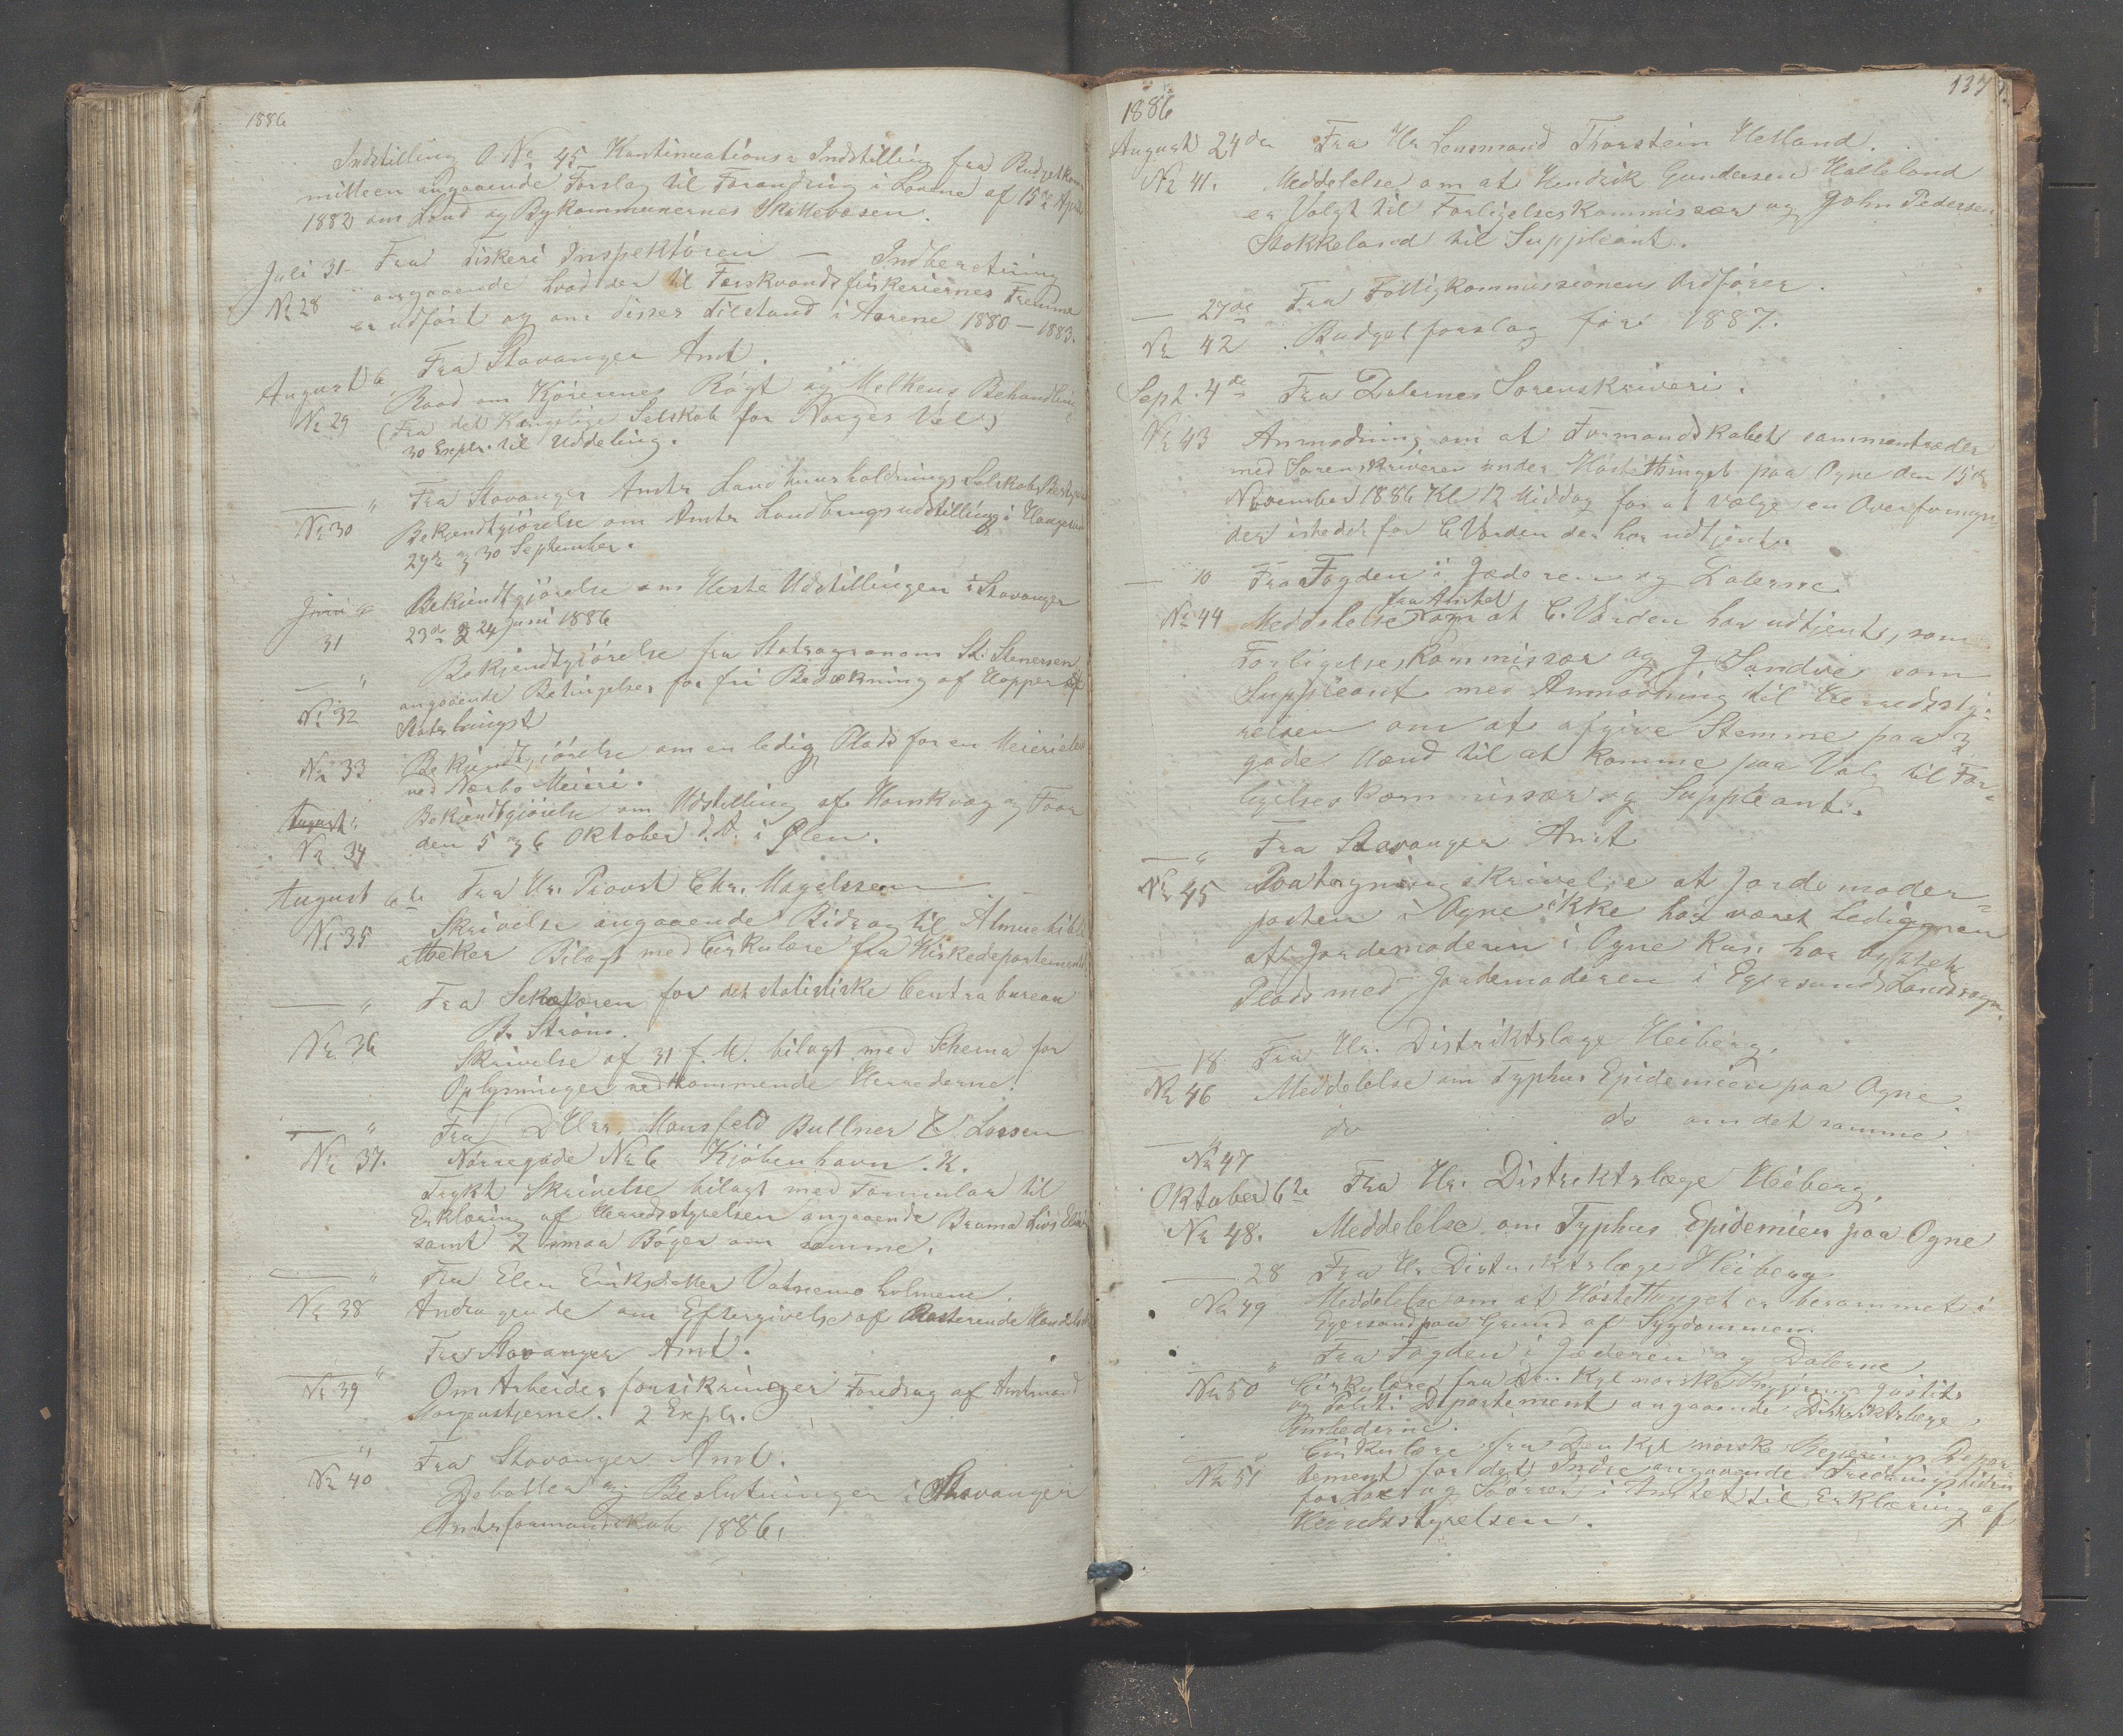 1886
Indstilling O. No 45 Kontinuations Indstilling fra Budgetkom
mitteen angaaende Forslag til Forandring i Lovene af 15de April
1882 om Land og Bykommunernes Skattevæsen.
Juli 31 Fra Fiskeri Inspektøren — Indberetning
No 28 angaaende hvad der til Ferskvandsfiskeriernes Fremme
er udført og om disses Tilstand i Aarene 1880 – 1883.
August 6 Fra Stavanger Amt.
No 29 Raad om Kjørernes Røgt og Melkens Behandling
(Fra det Kongelige Selskab for Norges Vel)
30 Expl. til Uddeling.
— " Fra Stavanger Amts Landhuusholdnings Selskabs Bestyrelse
No 30 Bekjendtgjørelse om Amts Landbrugsudstilling i Haugesund
29de og 30 September.
Juni "
31 Bekjendtgjørelse om Heste Udstillingen i Stavanger
23de & 24 Juni 1886
— " Bekjendtgjørelse fra Statsagronom St. Stenersen
No 32 angaaende Betingelser for fri Bedækning af Hopper af
Statshingst
No 33 Bekjendtgjørelse om en ledig Plads for en Meierielev
ved Nærbø Meieri.
August " Bekjendtgjørelse om Udstilling af Hornkvæg og Faar
No 34 den 5 og 6 Oktober d. A. i Ølen.
August 6te Fra Hr. Provst Chr. Magelssen
No 35 Skrivelse angaaende Bidrag til Almuebibli
otheker Bilagt med Cirkulære fra Kirkedepartementet
— " Fra Sekretæren for det statistiske Centrabureau
No 36 B. Strøm.
Skrivelse af 31 f. M. bilagt med Schema for
Oplysninger vedkommende Herrederne.
— " Fra DHrr. Mansfeld Bullner & Lassen
No 37. Nørregade No 6 Kjøbenhavn. K.
Trykt Skrivelse bilagt med Formular til
Erklæring af Herredsstyrelsen angaaende Brama Livs Elixir
samt 2 smaa Bøger om samme.
— " Fra Elen Eriksdatter Vatnemo holmene.
No 38 Andragende om Eftergivelse af Resterende
Fra Stavanger Amt.
No 39 " Om Arbeiderforsikringer Foredrag af Amtmand
Morgenstjerne. 2 Expl.
— " Fra Stavanger Amt.
No 40 Debatter og Beslutninger i Stavanger
Amtsformandskab 1886.
137
1886
August 24de Fra Hr Lensmand Thorstein Hetland.
No 41. Meddelelse om at Hendrik Gundersen Helleland
er Valgt til Forligelseskommissær og John Pedersen
Stokkeland til Suppleant.
— 27de Fra Fattigkommissionens Ordfører.
No 42 Budgetforslag for 1887.
Sept. 4de Fra Dalernes Sorenskriveri.
No 43 Anmodning om at Formandskabet sammentræder
med Sorenskriveren under Høstethinget paa Ogne den 15de
November 1886 Kl 12 Middag for at vælge en Overformyn
der istedet for C. Varden der har udtjent.
— 10 Fra Fogden i Jæderen og Dalerne
fra Amtet
No 44 Meddelelse om at C. Varden har udtjent, som
Forligelseskommissær og J. Sandvie som
Suppleant med Anmodning til Herredssty-
relsen om at afgive Stemme paa 3
gode Mænd til at komme paa Valg til For-
ligelseskommissær og Suppleant.
— " Fra Stavanger Amt
No 45 Paategningsskrivelse at Jordemoder-
posten i Ogne ikke har været Ledig men
at Jordemoderen i Ogne Kun har byttet
Plads med Jordemoderen i Egersunds Landsogn.
— 18 Fra Hr. Distriktslæge Heiberg.
No 46 Meddelelse om Typhus Epidemien paa Ogne.
— " do do om det samme.
No 47
Oktober 6te Fra Hr. Distriktslæge Heiberg.
No 48. Meddelelse om Typhus Epidemien paa Ogne
— 28 Fra Hr Distriktslæge Heiberg
No 49 Meddelelse om at Høstethinget er berammet i
Egersund paa Grund af Sygdommen.
" Fra Fogden i Jæderen og Dalerne,
No 50 Cirkulære fra den Kgl norske Regjerings Justits
og Politi Departement angaaende Distriktslæge
Embederne.
" Cirkulære fra Den Kgl norske Regjerings Depar
No 51 tement for det Indre angaaende Fredningstiden
for Lax og Søørret i Amtet til Erklæring af
Herredsstyrelsen.